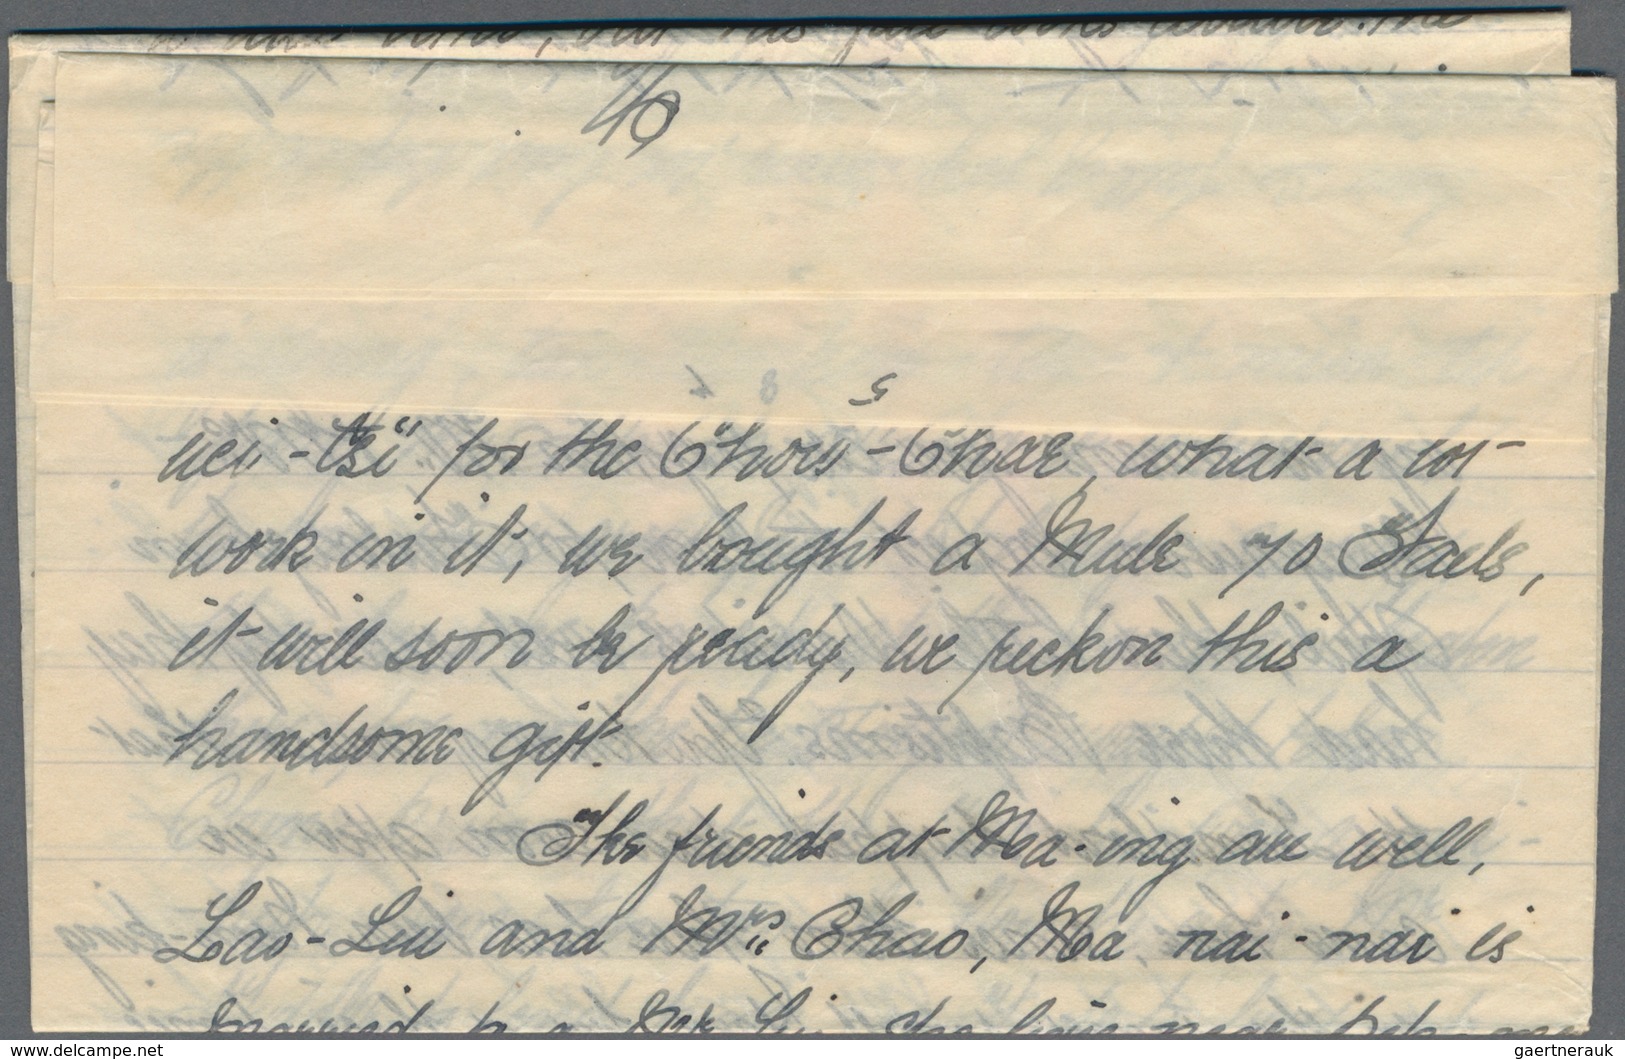 but his
40
5
for the Chow-Chae, what a lot
work in it, we bought a Mule 70 Taels,
it will soon be ready, we reckon this a
handsome gift.
The friends at Ma-ing are well,
Lao-Liu and Mrs. Chao, Ma nai-nai is
married to a Mr Liu, she
© www.delcampe.net
gaertnerauk